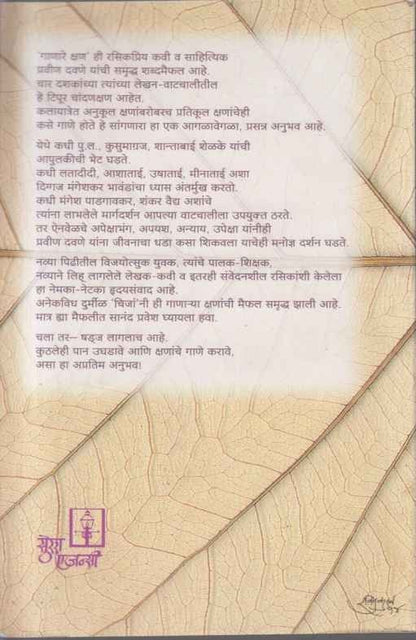 'गाणारे क्षण' ही रसिकप्रिय कवी व साहित्यिक
प्रवीण दवणे यांची समृद्ध शब्दमैफल आहे.
चार दशकांच्या त्यांच्या लेखन-वाटचालीतील
हे टिपूर चांदणक्षण आहेत.
कलायात्रेत अनुकूल क्षणांबरोबरच प्रतिकूल क्षणांचेही
कसे गाणे होते हे सांगणारा हा एक आगळावेगळा, प्रसन्न अनुभव आहे.
येथे कधी पु.ल., कुसुमाग्रज, शान्ताबाई शेळके यांची
आपुलकीची भेट घडते.
कधी लतादीदी, आशाताई, उषाताई, मीनाताई अशा
दिग्गज मंगेशकर भावंडांचा ध्यास अंतर्मुख करतो.
कधी मंगेश पाडगावकर, शंकर वैद्य अशांचे
त्यांना लाभलेले मार्गदर्शन आपल्या वाटचालीला उपयुक्त ठरते.
तर ऐनवेळचे अपेक्षाभंग, अपयश, अन्याय, उपेक्षा यांनीही
प्रवीण दवणे यांना जीवनाचा धडा कसा शिकवला याचेही मनोज्ञ दर्शन घडते.
नव्या पिढीतील विजयोत्सुक युवक, त्यांचे पालक-शिक्षक,
नव्याने लिहू लागलेले लेखक-कवी व इतरही संवेदनशील रसिकांशी केलेला
हा नेमका-नेटका हृदयसंवाद आहे.
अनेकविध दुर्मीळ 'चिजां'नी ही गाणाऱ्या क्षणांची मैफल समृद्ध झाली आहे.
मात्र ह्या मैफलीत सानंद प्रवेश घ्यायला हवा.
चला तर— षड्ज लागलाच आहे.
कुठलेही पान उघडावे आणि क्षणांचे गाणे करावे,
असा हा अप्रतिम अनुभव!
सुरस
एजन्सी